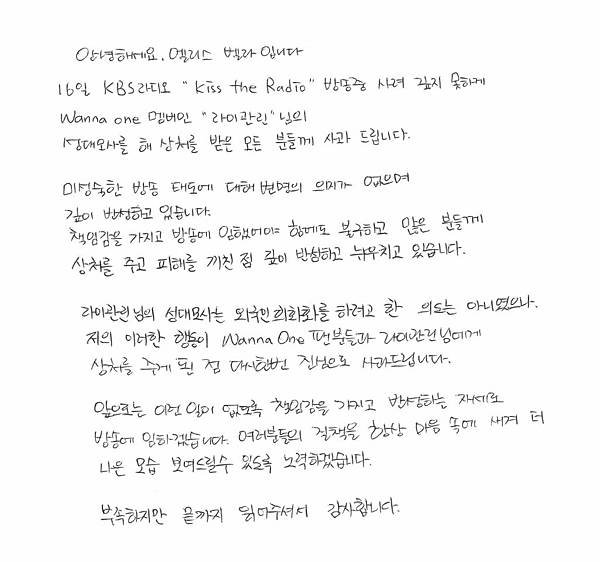 안녕하세요. 엘리스 벨라 입니다
16일 KBS라디오 "Kiss the Radio" 방송중 사려 깊지 못하게
Wanna one 멤버인 "라이관린"님의
성대모사를 해 상처를 받은 모든 분들께 사과 드립니다.
미성숙한 방송 태도에 대해 변명의 의미가 없으며
깊이 반성하고 있습니다.
책임감을 가지고 방송에 임했어야 함에도 불구하고 많은 분들께
상처를 주고 피해를 끼친 점 깊이 반성하고 뉘우치고 있습니다.
라이관린님의 성대모사는 외국인 희화화를 하려고 한 의도는 아니였으나.
저의 이러한 행동이 Wanna One 팬분들과 라이관린님에게
상처를 주게 된 점 다시한번 진심으로 사과드립니다.
앞으로는 이런 일이 없도록 책임감을 가지고 반성하는 자세로
방송에 임하겠습니다. 여러분들의 질책을 항상 마음 속에 새겨 더
나은 모습 보여드릴수 있도록 노력하겠습니다.
부족하지만 끝까지 읽어주셔서 감사합니다.